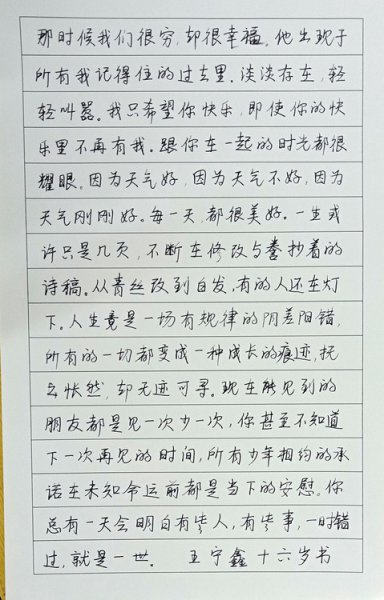 那时候我们很穷,却很幸福。他出现于
所有我记得住的过去里。淡淡存在,轻
轻叫嚣。我只希望你快乐,即使你的快
乐里不再有我。跟你在一起的时光都很
耀眼。因为天气好,因为天气不好,因为
天气刚刚好。每一天,都很美好。一生或
许只是几页,不断在修改与誊抄着的
诗稿。从青丝改到白发,有的人还在灯
下。人生竟是一场有规律的阴差阳错,
所有的一切都变成一种成长的痕迹,抚
之怅然,却无迹可寻。现在能见到的
朋友都是见一次少一次,你甚至不知道
下一次再见的时间,所有少年相约的承
诺在未知命运前都是当下的安慰。你
总有一天会明白有些人,有些事,一时错
过,就是一世. 王宁鑫 十六岁书